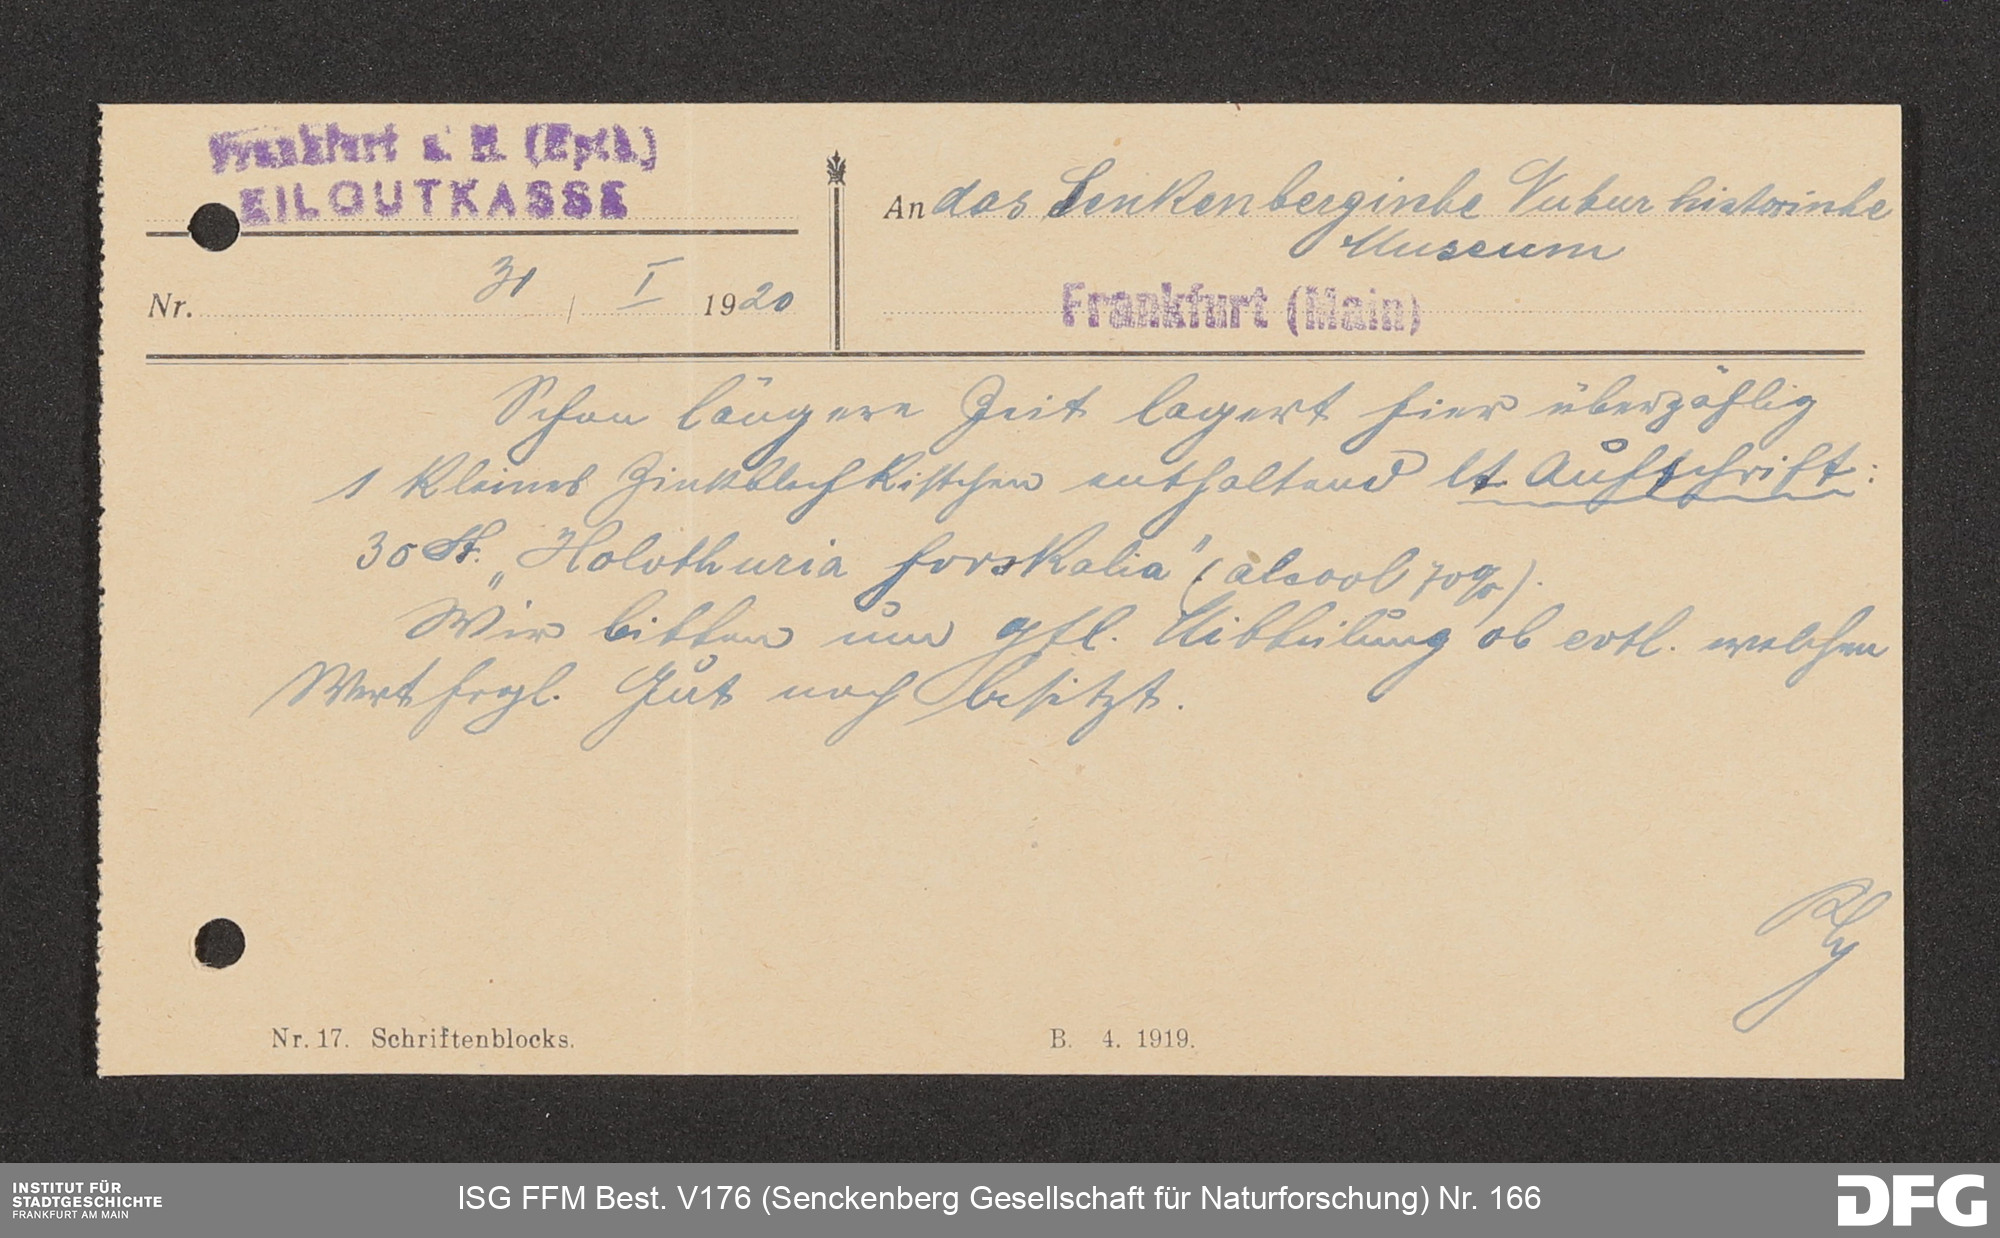 Frankfurt a. M. (Hptb.)
EILGUTKASSE
An das Senkenbergische Naturhistorische
Museum
Nr. 31 / I 1920
Frankfurt (Main)
Schon längere Zeit lagert hier überzählig
1 kleines Zinkblechkistchen enthaltend lt. Aufschrift:
30 St. „Holothuria forskalia" (alcool 70%).
Wir bitten um gfl. Mitteilung ob evtl. welchen
Wert fragl. Gut noch besitzt.
Nr. 17. Schriftenblocks.
B. 4. 1919.
INSTITUT FÜR
STADTGESCHICHTE
FRANKFURT AM MAIN
ISG FFM Best. V176 (Senckenberg Gesellschaft für Naturforschung) Nr. 166
DFG